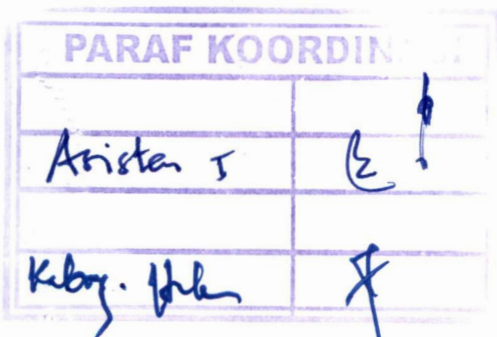 PARAF KOORDIN
Asisten I
Kabag. Hukum